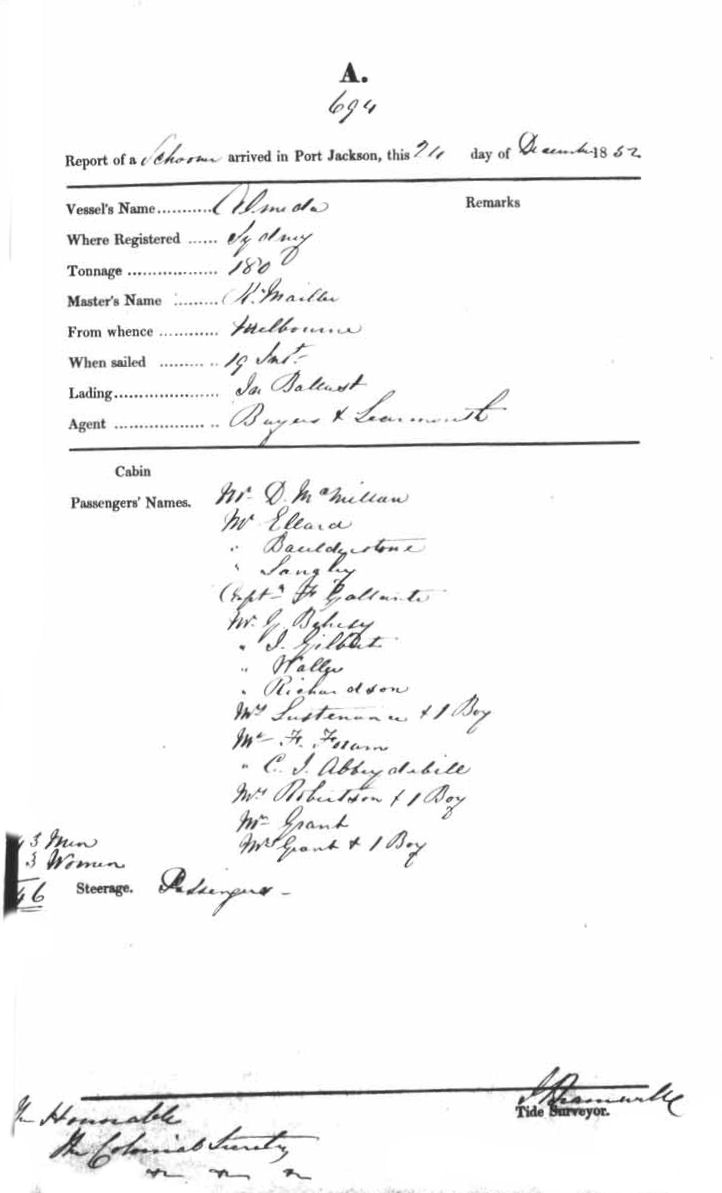 A.
694
Report of a Schooner arrived in Port Jackson, this 24 day of December 1852
Vessel's Name........... Almeda Remarks
Where Registered ...... Sydney
Tonnage .................. 180
Master's Name ......... K. Mailler
From whence ............ Melbourne
When sailed ......... .. 19 Inst.
Lading..................... In Ballast
Agent ................. .. Buyers & Learmonth
Cabin
Passengers' Names. Mr D. McMillan
Mr Ellard
" Bauldystone
" Langley
Captn F Gallante
Mr. G.
" J. Gilbert
" Waller
" Richardson
Mrs Sustenance & 1 Boy
Mr F.
" C. J. Abbeydebill
Mrs Robertson & 1 Boy
Mr Grant
Mrs Grant & 1 Boy
43 Men
3 Women
46 Steerage. Passengers -
J Bramwell
Tide Surveyor.
The Honorable
The Colonial Secrety